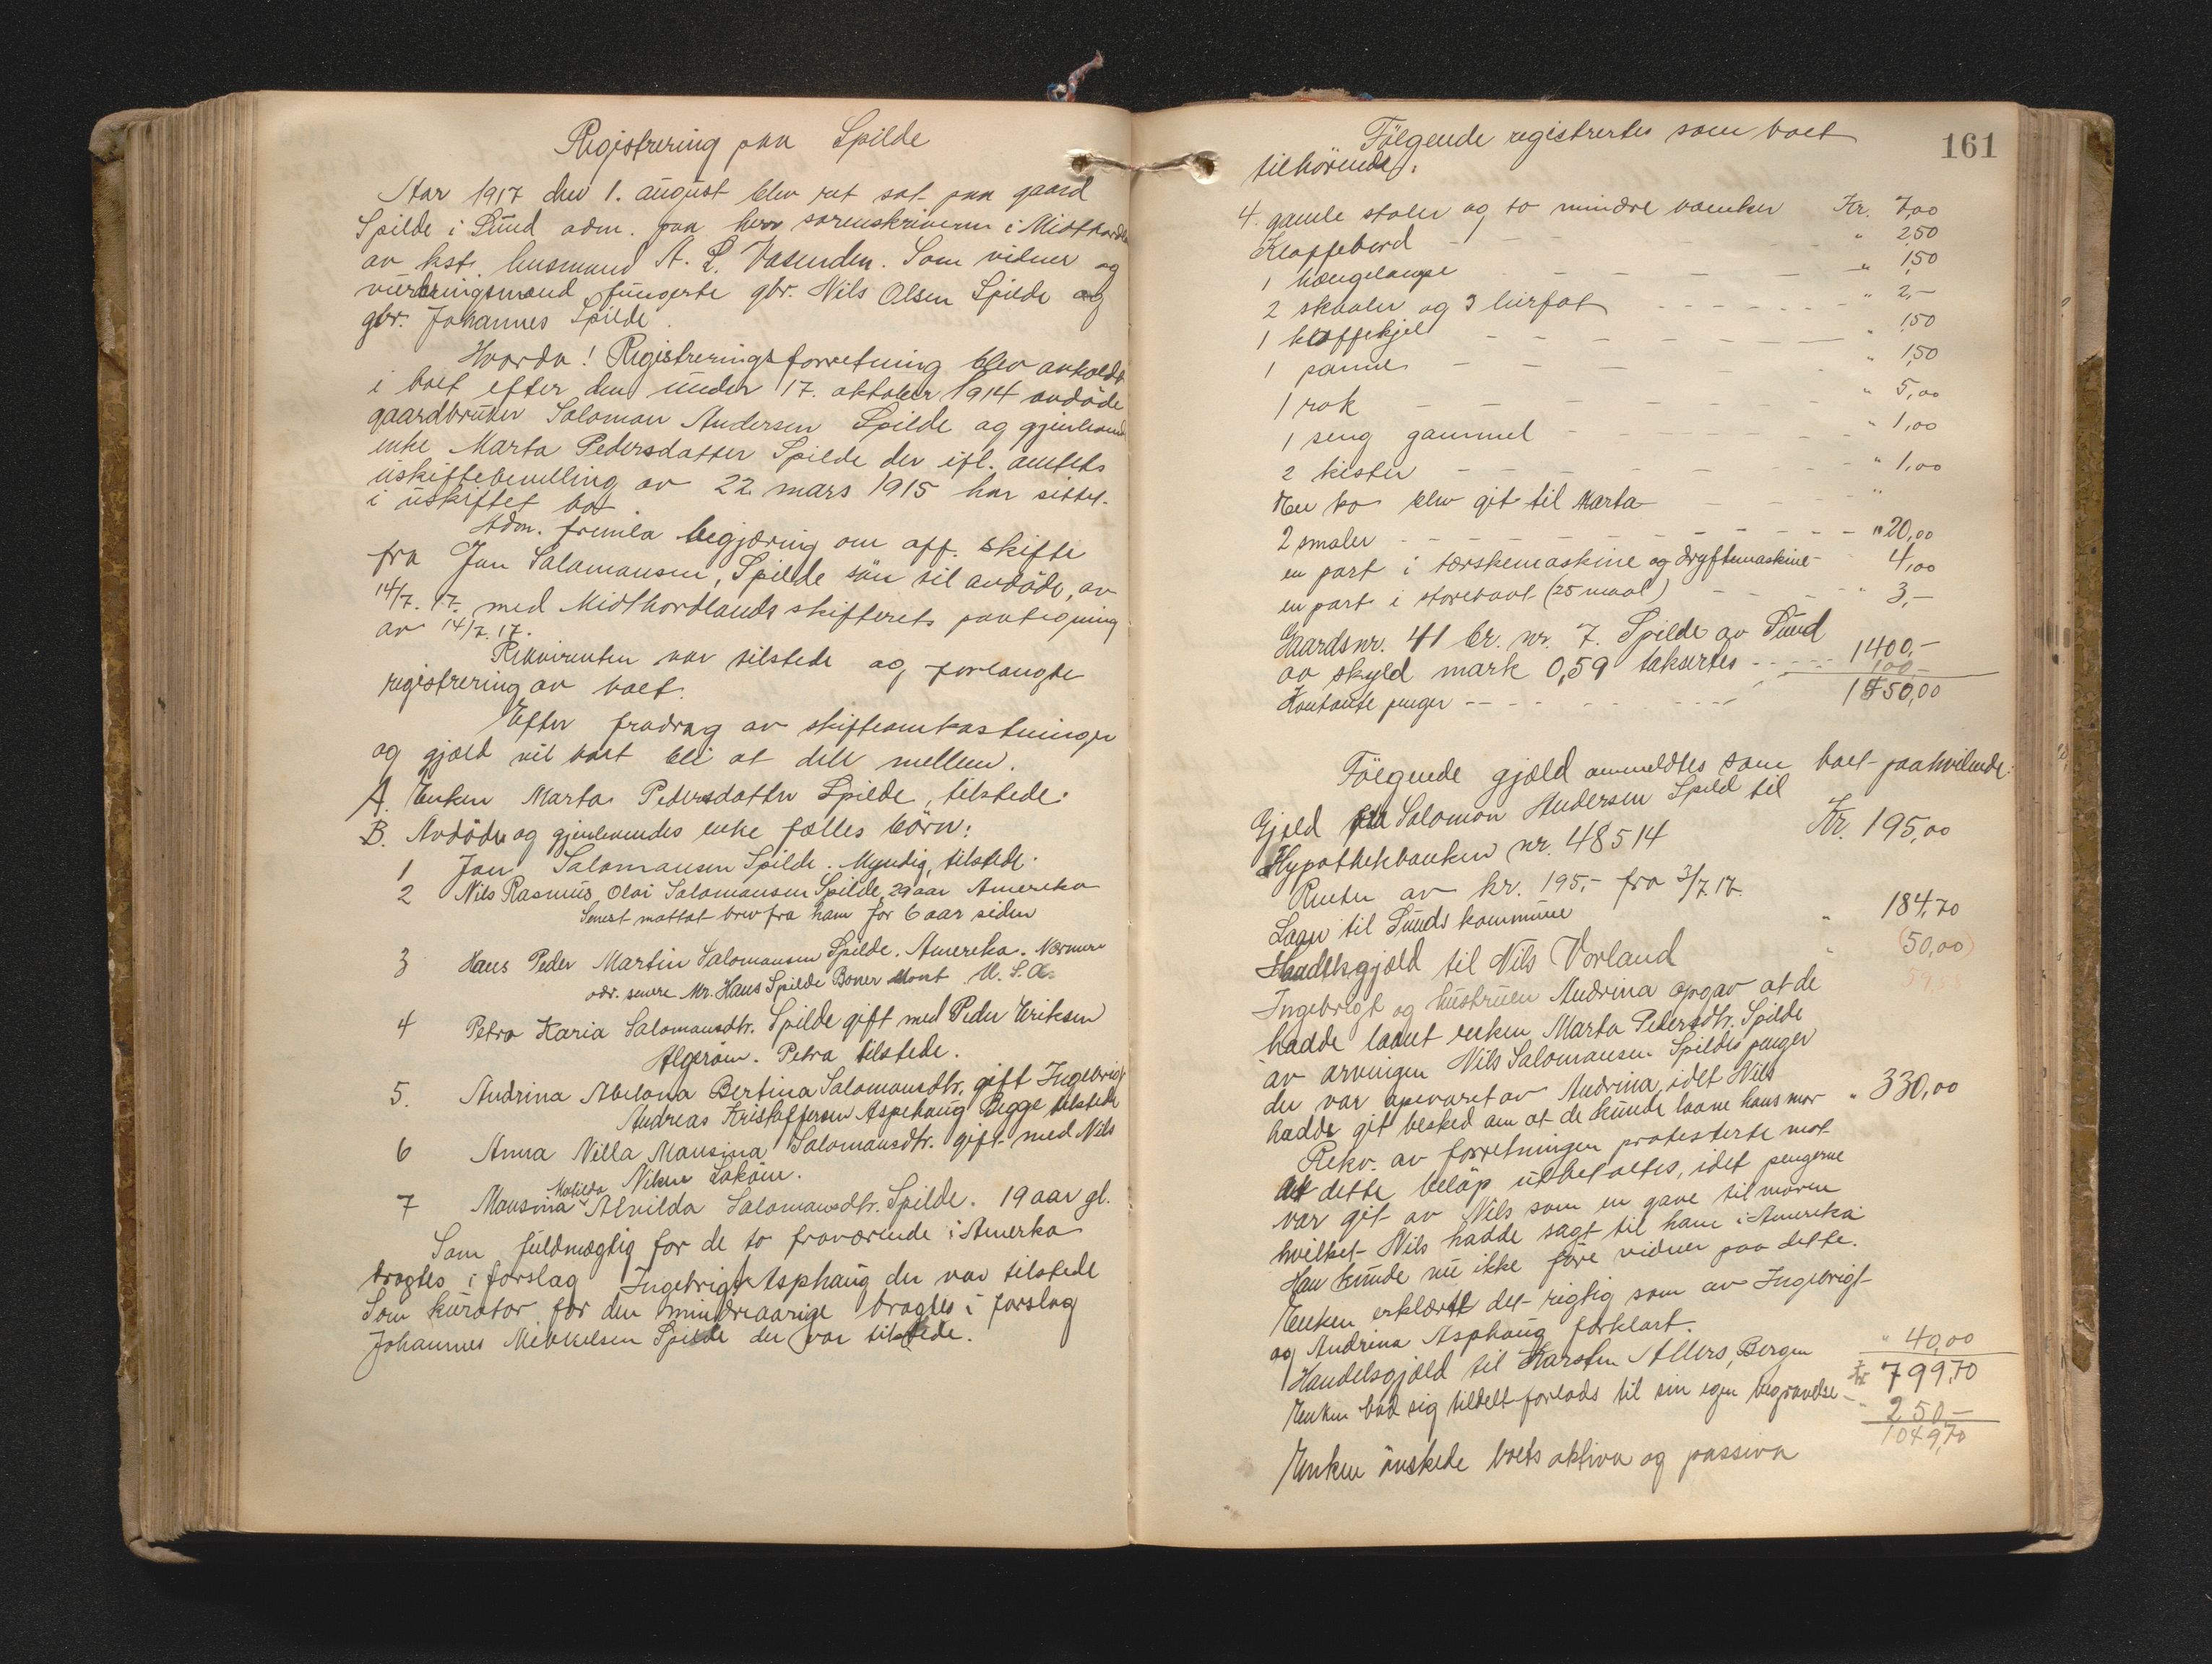 Registrering paa Spilde
Aar 1917 den 1. august blev ret sat paa gaard
Spilde i Sund adm. paa herr sorenskriveren i Midthordl
av kst. lensmand A. L. Vasenden. Som vidner og
vurderingsmænd fungerte gbr. Nils Olsen Spilde og
gbr. Johannes Spilde.
Hvorda! Registreringsforretning blev avholdt
i boet efter den under 17. oktober 1914 avdöde
gaardbruker Salomon Andersen Spilde og gjenlevende
enke Marta Pedersdatter Spilde der ifl. amtets
uskiftebevilling av 22 mars 1915 har sittet
i uskiftet bo.
Adm. fremla begjæring om off. skifte
fra Jan Salamonsen, Spilde sön til avdöde, av
14/7. 17. med Midthordlands skifterets paategning
av 14/7. 17.
Rekvirenten var tilstede og forlangte
registrering av boet.
Efter fradrag av skifteomkostninger
og gjæld vil boet bli at dele mellem.
A. Enken Marta Pedersdatter Spilde, tilstede.
B. Avdödes og gjenlevendes enke fælles börn:
1 Jan Salamonsen Spilde. Myndig, tilstede.
2 Nils Rasmus Olai Salamonsen Spilde, 29 aar Amereka
Senest mottat brev fra ham for 6 aar siden
3 Hans Peder Martin Salomonsen Spilde. Amereka. Nærmere
adr. senere Mr. Hans Spilde Boner Mont U. S. A.
4 Petra Karia Salamonsdtr. Spilde gift med Peder Eriksen
Algeröin. Petra tilstede.
5. Andrina Abelona Bertina Salomonsdtr. gift Ingebrigt
Andreas Kristoffersen Aspehaug Begge tilstede
6 Anna Nilla Mansina Salomonsdtr. gift med Nils
Nilsen Laköin.
7 Mansina Matilda Alvilda Salamonsdtr. Spilde. 19 aar gl.
Som fuldmægtig for de to fraværende i Amerka
bragtes i forslag Ingebrigt Asphaug der var tilstede
Som kurator for den mindreaarige bragtes i forslag
Johannes Mikkelsen Spilde der var tilstede.
161
Fölgende registrertes som boet
tilhörende:
4. gamle stoler og to mindre bænker Kr. 7,00
Klaffebord - " 2,50
1 hængelampe - " 1,50
2 skaaler og 3 lirfat - " 2,-
1 kaffekjel - " 1,50
1 panne - " 1,50
1 rok - " 5,00
1 seng gammel - " 1,00
2 kister - " 1,00
En ko blev git til Marta - "
2 smaler - " 20,00
en part i tærskemaskine og dryftemaskine - 4,00
en part i storebaat (25 maal) - " 3,-
Gaardsnr. 41 br. nr. 7. Spilde av Sund
av skyld mark 0,59 taksertes - 1400,-
Kontante penger - 100-
1550,00
Fölgende gjæld anmeldtes som boet paahvilende:
Gjæld fra Salomon Andersen Spild til
Hypothekbanken nr. 48514 Kr. 195,00
Renter av kr. 195,- fra 3/7 17.
Laan til Sunds kommune " 184,70
Handelsgjæld til Nils Vorland " (50,00)
Ingebrigt og hustruen Andrina opgav at de
hadde laant enken Marta Pedersdtr. Spilde
av arvingen Nils Salomonsen Spildes penger
der var opevaret av Andrina, idet Nils
hadde git besked om at de kunde laane hans mor " 330,00
Rekv. av forretningen protesterte mot
at dette beløp utbetaltes, idet pengerne
var git av Nils som en gave til moren
hvilket Nils hadde sagt til ham i Amereka
Han kunde nu ikke före vidner paa dette.
Enken erklærte det rigtig som av Ingebrigt
og Andrina Asphaug forklart.
Handelsgjæld til Karsten Allers, Bergen " 40,00
Kr 799,70
Enken bad sig tildelt forlods til sin egen begravelse - " 250-
1049,70
Enken önskede boets aktiva og passiva